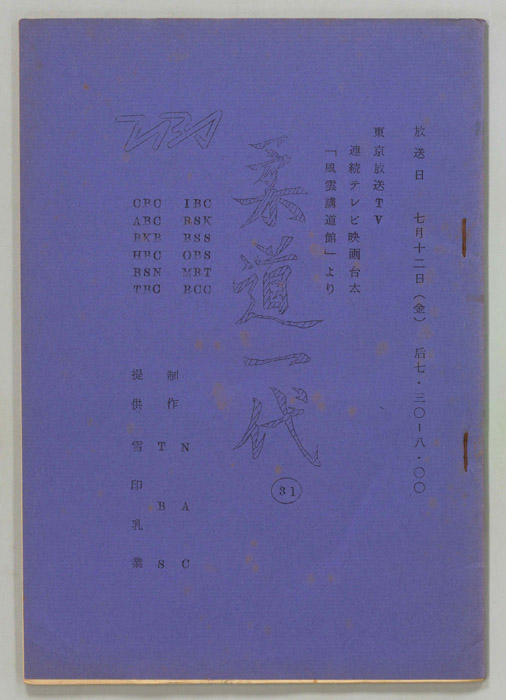 放送日　七月十二日（金）　后七・三〇－八・〇〇
東京放送TV
連続テレビ映画台本
「風雲講道館」より
柔道一代
31
TBS
CBC　IBC
ABC　RSK
RKB　BSS
HBC　OBS
BSN　MRT
TBC　RCC
制作　NAC
TBS
提供　雪印乳業